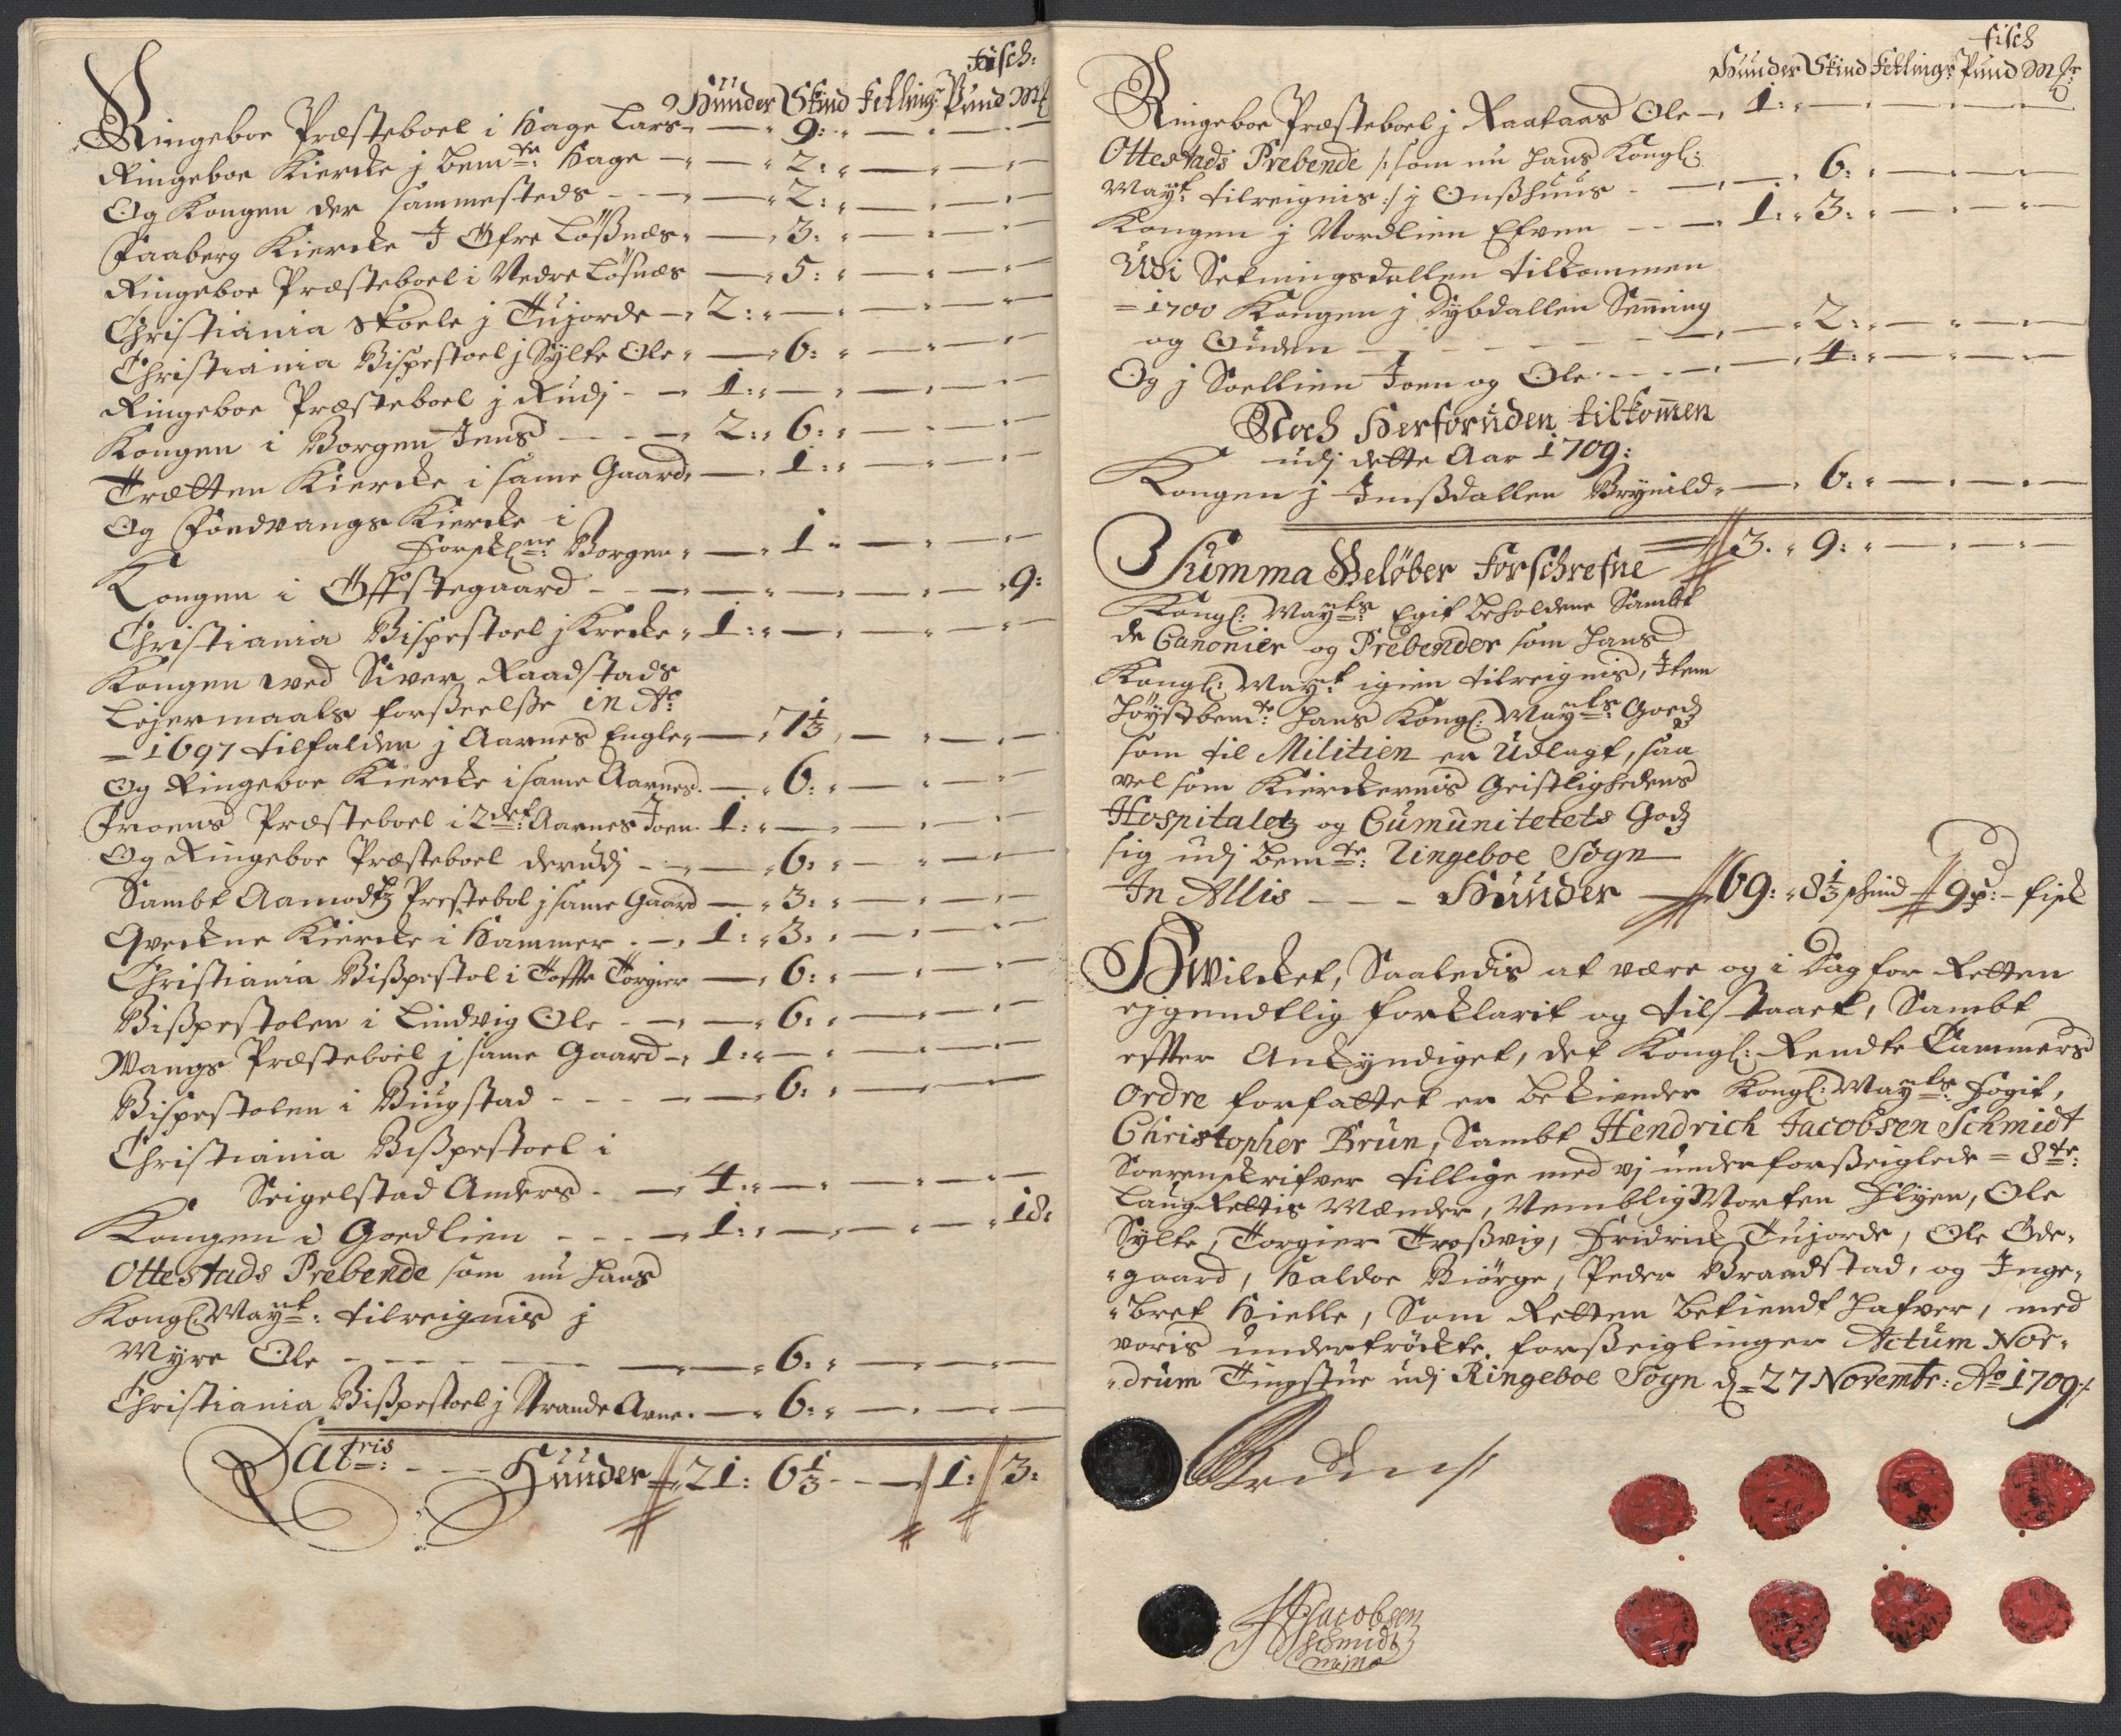 Fisch:
Hunder Skind Fellinger Pund Mk
Ringeboe Præsteboel i Hage Lars — 9: — — —
Ringeboe Kiercke j bemte: Hage — — 2: — — —
Og Kongen der sammesteds — — 2: — — —
Faaberg Kiercke J Øfre Løßnæs — 3: — — —
Ringeboe Præsteboel i Nedre Løsnæs — 5: — — —
Christiania Skoele j Tujorde — 2: — — — —
Christiania Bispestoel j Sylte Ole — 6: — — —
Ringeboe Præsteboel j Rudj — 1: — — — —
Kongen i Borgen Jens — 2: 6: — — —
Trætten Kiercke i same Gaard — 1: — — —
Og Foedvangs Kiercke i
Forskne: Borgen — 1 — — —
Kongen i Øffstegaard — — — — — 9:
Christiania Bispestoel j Krecke 1: — — — —
Kongen wed Siver Raadstads
Lejermaals forßeelße in Ao:
1697 tilfalden j Aarnes Engle — 7 1/3 — — —
Og Ringeboe Kiercke i same Aarnes — 6: — — —
Froens Præsteboel i 2det: Aarnes Joen 1: — — — —
Og Ringeboe Præsteboel derudj — 6: — — —
Sambt Aamodtz Prestebol j same Gaard — 3: — — —
Qveckne Kiercke i Hammer — 1: 3: — — —
Christiania Bißpestol i Toffte Torgier — 6: — — —
Bißpestolen i Lindvig Ole — — 6: — — —
Wangs Præsteboel j same Gaard — 1: — — — —
Bispestolen i Biugstad — — 6: — — —
Christiania Bißpestoel i
Seigelstad Anders — 4: — — — —
Kongen i Goedlien — 1: — — — 18:
Ottestads Prebende som nu Hans
Kongl: Mayt: tilreignis j
Myre Ole — — 6: — — —
Christiania Bißpestoel j Strande Arne — 6: — — —
Latris: — Hunder 21: 6 1/3 — 1: 3:
fisch
Hunder Skind Fetlinger Pund Mkr
Ringeboe Præsteboel j Raataas Ole — 1: — — — —
Ottestads Prebende /: som nu Hans Kongl:
Mayt: tilreignis :/ j Onßhuus — — 6: — — —
Kongen j Nordlien Efven — 1: 3: — — —
Udi Sekningsdallen tilkommen
1700 Kongen j Dybdallen Senning
og Guden — — 2: — — —
Og j Soellien Joen og Ole — — 4: — — —
Noch Herforuden tilkommen
udj dette Aar 1709:
Kongen j Imßdallen Brynild — 6: — — —
Summa Beløber Forschrefne 3. 9: — — —
Kongl: Mayts: Egit beholdene Sambt
de Canonier og Prebender som Hans
Kongl: Mayt: igien tilreignis, Item
Høystbemte: Hans Kongl: Mayts: Goedz
som til Militien er Udlagt, saa
vel som Kierckernis Geistlighedens
Hospitaletz og Cumunitetets Godz
sig udj bemte: Ringeboe Sogn
In Allis — Hunder 69: 8 1/3 skind 9 p: — fisk
Hwilcket, Saaledis at være og i Dag for Retten
ejgendtlig forklarit og tilstaaet, Sambt
efter Ankyndiget, det Kongl: Rendte Cammers
Ordre forfattet er bekiender Kongl: Mayts: Fogit,
Christopher Brun, Sambt Hendrich Jacobsen Schmidt
Sorenskrifver tillige med vj underforßeiglede 8te:
Laug Rettis Mænder, Nemblig Morten Flyen, Ole
Sylte, Torgier Troßvig, Fridrick Tujorde, Ole Ode-
gaard, Haldoe Biørge, Peder Braadstad, og Inge-
bret Hielle, Som Retten betiendt Hafver, med
voris undertrøckte forßeiglinger Actum Nor-
deum Tingstue udj Ringeboe Sogn d: 27 Novembr: Ao 1709:/
HJacobsen
Schmidt
mpma